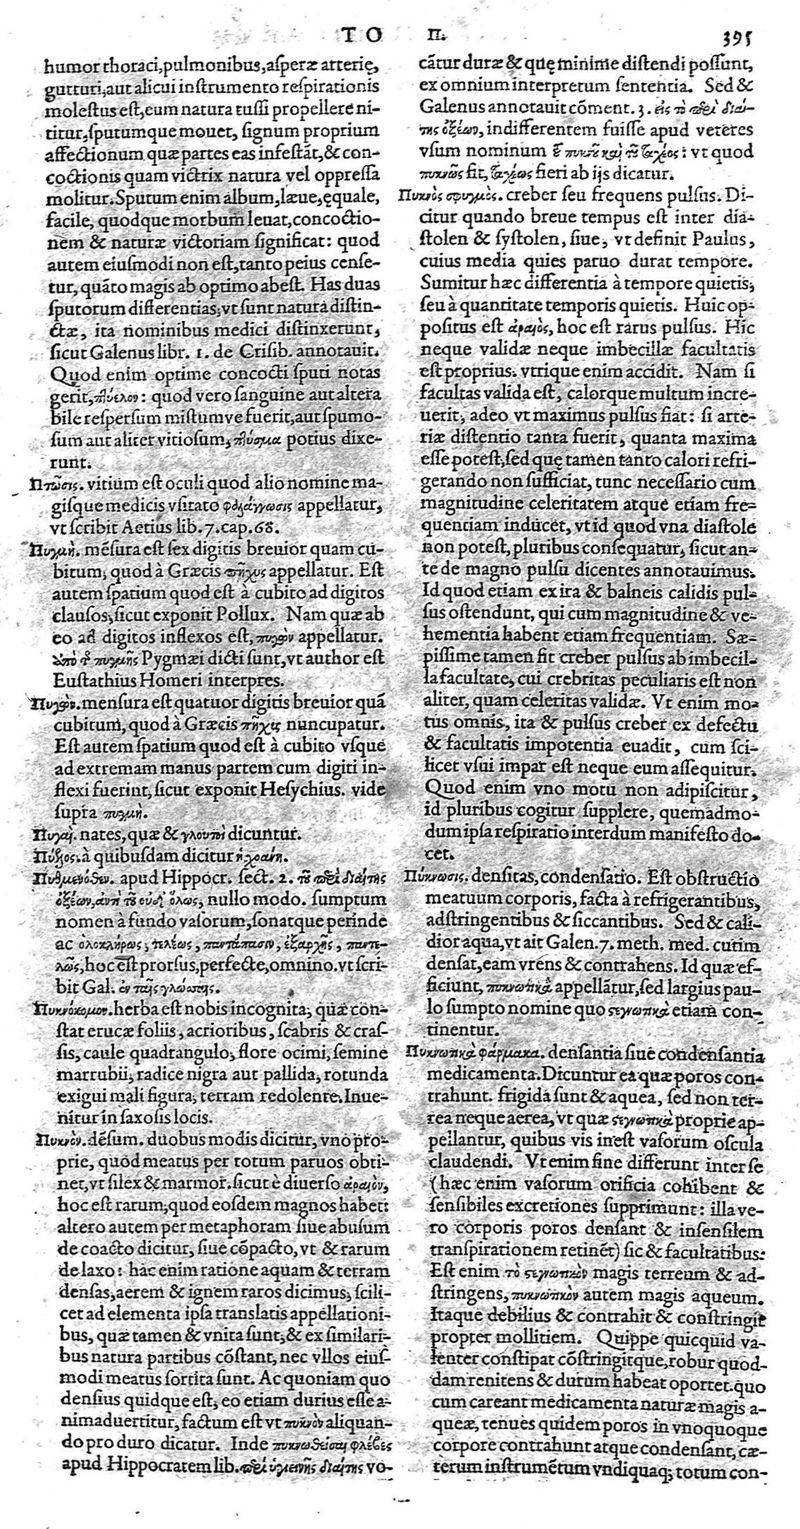 TO Π. 395
humor thoraci, pulmonibus, asperæ arterię,
gutturi, aut alicui instrumento respirationis
molestus est, eum natura tussi propellere ni-
titur, sputumque mouet, signum proprium
affectionum quæ partes eas infestāt, & con-
coctionis quam victrix natura vel oppressa
molitur. Sputum enim album, læue, ęquale,
facile, quodque morbum leuat, concoctio-
nem & naturæ victoriam significat: quod
autem eiusmodi non est, tanto peius cense-
tur, quāto magis ab optimo abest. Has duas
sputorum differentias, vt sunt natura distin-
ctæ, ita nominibus medici distinxerunt,
sicut Galenus libr. 1. de Crisib. annotauit.
Quod enim optime concocti sputi notas
gerit, πτύελον: quod vero sanguine aut altera
bile respersum mistumve fuerit, aut spumo-
sum aut aliter vitiosum, πτύσμα potius dixe-
runt.
Πτῶσις. vitium est oculi quod alio nomine ma-
gisque medicis vsitato appellatur,
vt scribit Aetius lib. 7. cap. 68.
Πυγμὴ. mēsura est sex digitis breuior quam cu-
bitum, quod à Græcis πῆχυς appellatur. Est
autem spatium quod est à cubito ad digitos
clausos, sicut exponit Pollux. Nam quæ ab
eo ad digitos inflexos est, πυγὼν appellatur.
ὑπὸ τῆς πυγμῆς Pygmæi dicti sunt, vt author est
Eustathius Homeri interpres.
Πυγὼν. mensura est quatuor digitis breuior quā
cubitum, quod à Græcis πῆχυς nuncupatur.
Est autem spatium quod est à cubito vsque
ad extremam manus partem cum digiti in-
flexi fuerint, sicut exponit Hesychius. vide
supra πυγμὴ.
Πυγαὶ. nates, quæ & γλουτοὶ dicuntur.
à quibusdam dicitur
Πυθμενόθεν. apud Hippocr. sect. 2. τοῦ περὶ διαίτης
ὀξέων, ἀντὶ τοῦ οὐδ' ὅλως, nullo modo. sumptum
nomen à fundo vasorum, sonatque perinde
ac ὁλοκλήρως, τελέως, παντάπασιν, ἐξαρχῆς, παντε-
λῶς, hoc est prorsus, perfecte, omnino. vt scri-
bit Gal. ἐν ταῖς γλώτταις.
Πυκνόκομον. herba est nobis incognita, quæ con-
stat erucæ foliis, acrioribus, scabris & cras-
sis, caule quadrangulo, flore ocimi, semine
marrubii, radice nigra aut pallida, rotunda
exigui mali figura, terram redolente. Inue-
nitur in saxosis locis.
Πυκνὸν. dēsum. duobus modis dicitur, vno pro-
prie, quod meatus per totum paruos obti-
net, vt silex & marmor. sicut è diuerso ἀραιὸν,
hoc est rarum, quod eosdem magnos habet:
altero autem per metaphoram siue abusum
de coacto dicitur, siue cōpacto, vt & rarum
de laxo: hac enim ratione aquam & terram
densas, aerem & ignem raros dicimus, scili-
cet ad elementa ipsa translatis appellationi-
bus, quæ tamen & vnita sunt, & ex similari-
bus natura partibus cōstant, nec vllos eius-
modi meatus sortita sunt. Ac quoniam quo
densius quidque est, eo etiam durius esse a-
nimaduertitur, factum est vt πυκνὸν aliquan-
do pro duro dicatur. Inde πυκνωθεῖσαι φλέβες
apud Hippocratem lib. περὶ ὑγιεινῆς διαίτης vo-
cātur duræ & quę minime distendi possunt,
ex omnium interpretum sententia. Sed &
Galenus annotauit cōment. 3. εἰς τὸ περὶ διαί-
της ὀξέων, indifferentem fuisse apud veteres
vsum nominum τοῦ πυκνοῦ καὶ τοῦ ταχέος: vt quod
πυκνῶς fit, ταχέως fieri ab ijs dicatur.
Πυκνὸς σφυγμὸς. creber seu frequens pulsus. Di-
citur quando breue tempus est inter dia-
stolen & systolen, siue, vt definit Paulus,
cuius media quies paruo durat tempore.
Sumitur hæc differentia à tempore quietis,
seu à quantitate temporis quietis. Huic op-
positus est ἀραιὸς, hoc est rarus pulsus. Hic
neque validæ neque imbecillæ facultatis
est proprius. vtrique enim accidit. Nam si
facultas valida est, calorque multum incre-
uerit, adeo vt maximus pulsus fiat: si arte-
riæ distentio tanta fuerit, quanta maxima
esse potest, sed quę tamen tanto calori refri-
gerando non sufficiat, tunc necessario cum
magnitudine celeritatem atque etiam fre-
quentiam inducet, vt id quod vna diastole
non potest, pluribus consequatur, sicut an-
te de magno pulsu dicentes annotauimus.
Id quod etiam ex ira & balneis calidis pul-
sus ostendunt, qui cum magnitudine & ve-
hementia habent etiam frequentiam. Sæ-
pissime tamen fit creber pulsus ab imbecil-
la facultate, cui crebritas peculiaris est non
aliter, quam celeritas validæ. Vt enim mo-
tus omnis, ita & pulsus creber ex defectu
& facultatis impotentia euadit, cum sci-
licet vsui impar est neque eum assequitur.
Quod enim vno motu non adipiscitur,
id pluribus cogitur supplere, quemadmo-
dum ipsa respiratio interdum manifesto do-
cet.
Πύκνωσις. densitas, condensatio. Est obstructio
meatuum corporis, facta à refrigerantibus,
adstringentibus & siccantibus. Sed & cali-
dior aqua, vt ait Galen. 7. meth. med. cutim
densat, eam vrens & contrahens. Id quæ ef-
ficiunt, πυκνωτικὰ appellātur, sed largius pau-
lo sumpto nomine quo στεγνωτικὰ etiam con-
tinentur.
Πυκνωτικὰ φάρμακα. densantia siue condensantia
medicamenta. Dicuntur ea quæ poros con-
trahunt. frigida sunt & aquea, sed non ter-
rea neque aerea, vt quæ στεγνωτικὰ proprie ap-
pellantur, quibus vis inest vasorum oscula
claudendi. Vt enim fine differunt inter se
(hæc enim vasorum orificia cohibent &
sensibiles excretiones supprimunt: illa ve-
ro corporis poros densant & insensilem
transpirationem retinēt) sic & facultatibus.
Est enim τὸ στεγνωτικὸν magis terreum & ad-
stringens, πυκνωτικὸν autem magis aqueum.
Itaque debilius & contrahit & constringit
propter mollitiem. Quippe quicquid va-
lenter constipat cōstringitque, robur quod-
dam renitens & durum habeat oportet. quo
cum careant medicamenta naturæ magis a-
queæ, tenues quidem poros in vnoquoque
corpore contrahunt atque condensant, cæ-
terum instrumētum vndiquaq; totum con-